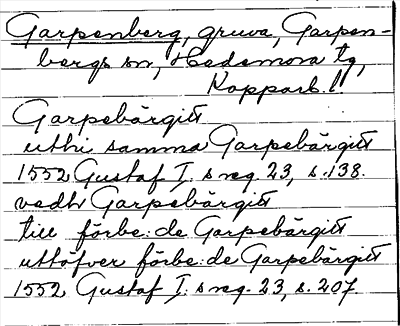 Garpenberg, gruva, Garpen-
bergs sn, Hedemora tg,
Kopparb. l.
Garpebärgit
uthi samma Garpebärgit
1552 Gustaf I:s reg. 23, s. 138.
vedh Garpebärgit
till förbe:de Garpebärgit
uttöfver förbe:de Garpebärgit
1552 Gustaf I:s reg. 23, s. 207.